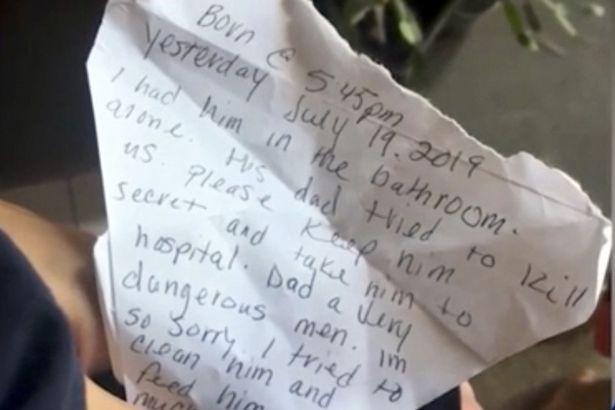 Born @ 5 45pm
Yesterday July 19. 2019
I had him in the bathroom.
alone. His dad tried to kill
us. please keep him
secret and take him to
hospital. Dad a very
dangerous men. im
so sorry. I tried to
clean him and
feed him